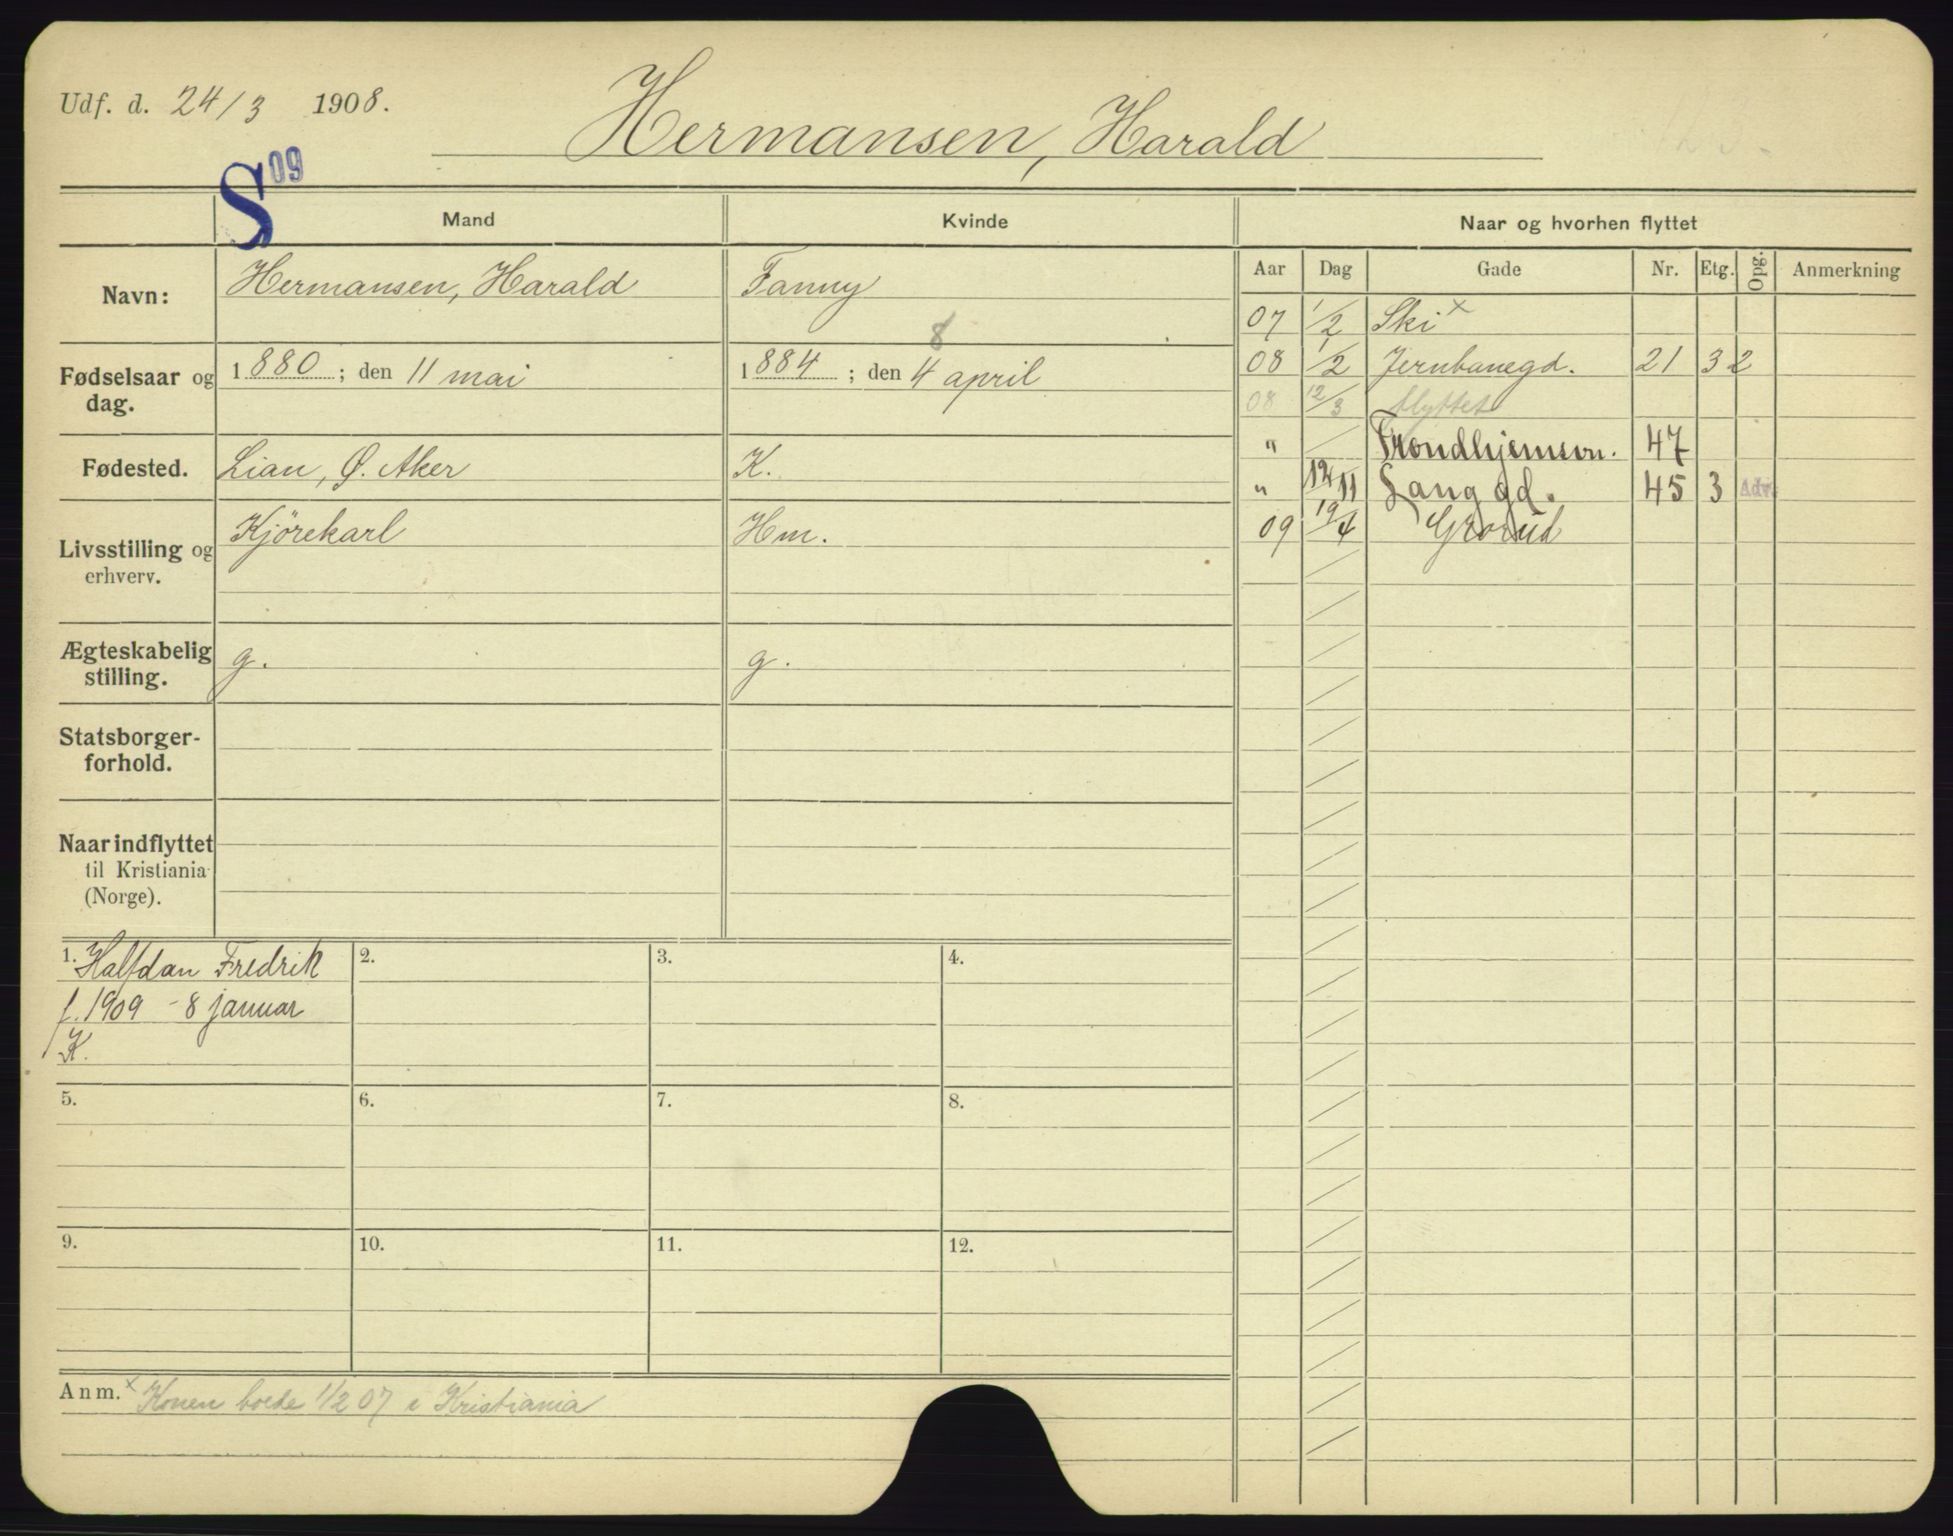 Udf. d. 24/3 1908.
Hermansen, Harald
S 09
Mand
Kvinde
Naar og hvorhen flyttet
Navn:
Hermansen, Harald
Fanny
Fødselsaar og dag.
1880; den 11 mai
1884; den 4 april
8
Fødested.
Lian, Ø. Aker
K.
Livsstilling og erhverv.
Kjörekarl
Hm.
Ægteskabelig stilling.
g.
g.
Statsborgerforhold.
Naar indflyttet til Kristiania (Norge).
Aar Dag Gade Nr. Etg. Opg. Anmerkning
07 1/2 Ski x
08 1/2 Jernbanegd. 21 3 2
08 12/3 flyttet
" Trondhjemsvn. 47
" 12/11 Langgd. 45 3 Adr.
09 19/4 Grorud
1. Halfdan Fredrik
f. 1909 - 8 januar
K.
2.
3.
4.
5.
6.
7.
8.
9.
10.
11.
12.
Anm. x Konen boede 1/2 07 i Kristiania